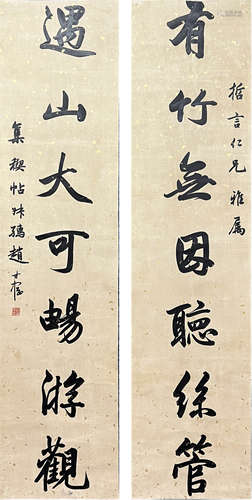 哲言仁兄雅屬
有竹無因聽絲管
遇山大可暢游觀
集稧帖叔孺趙